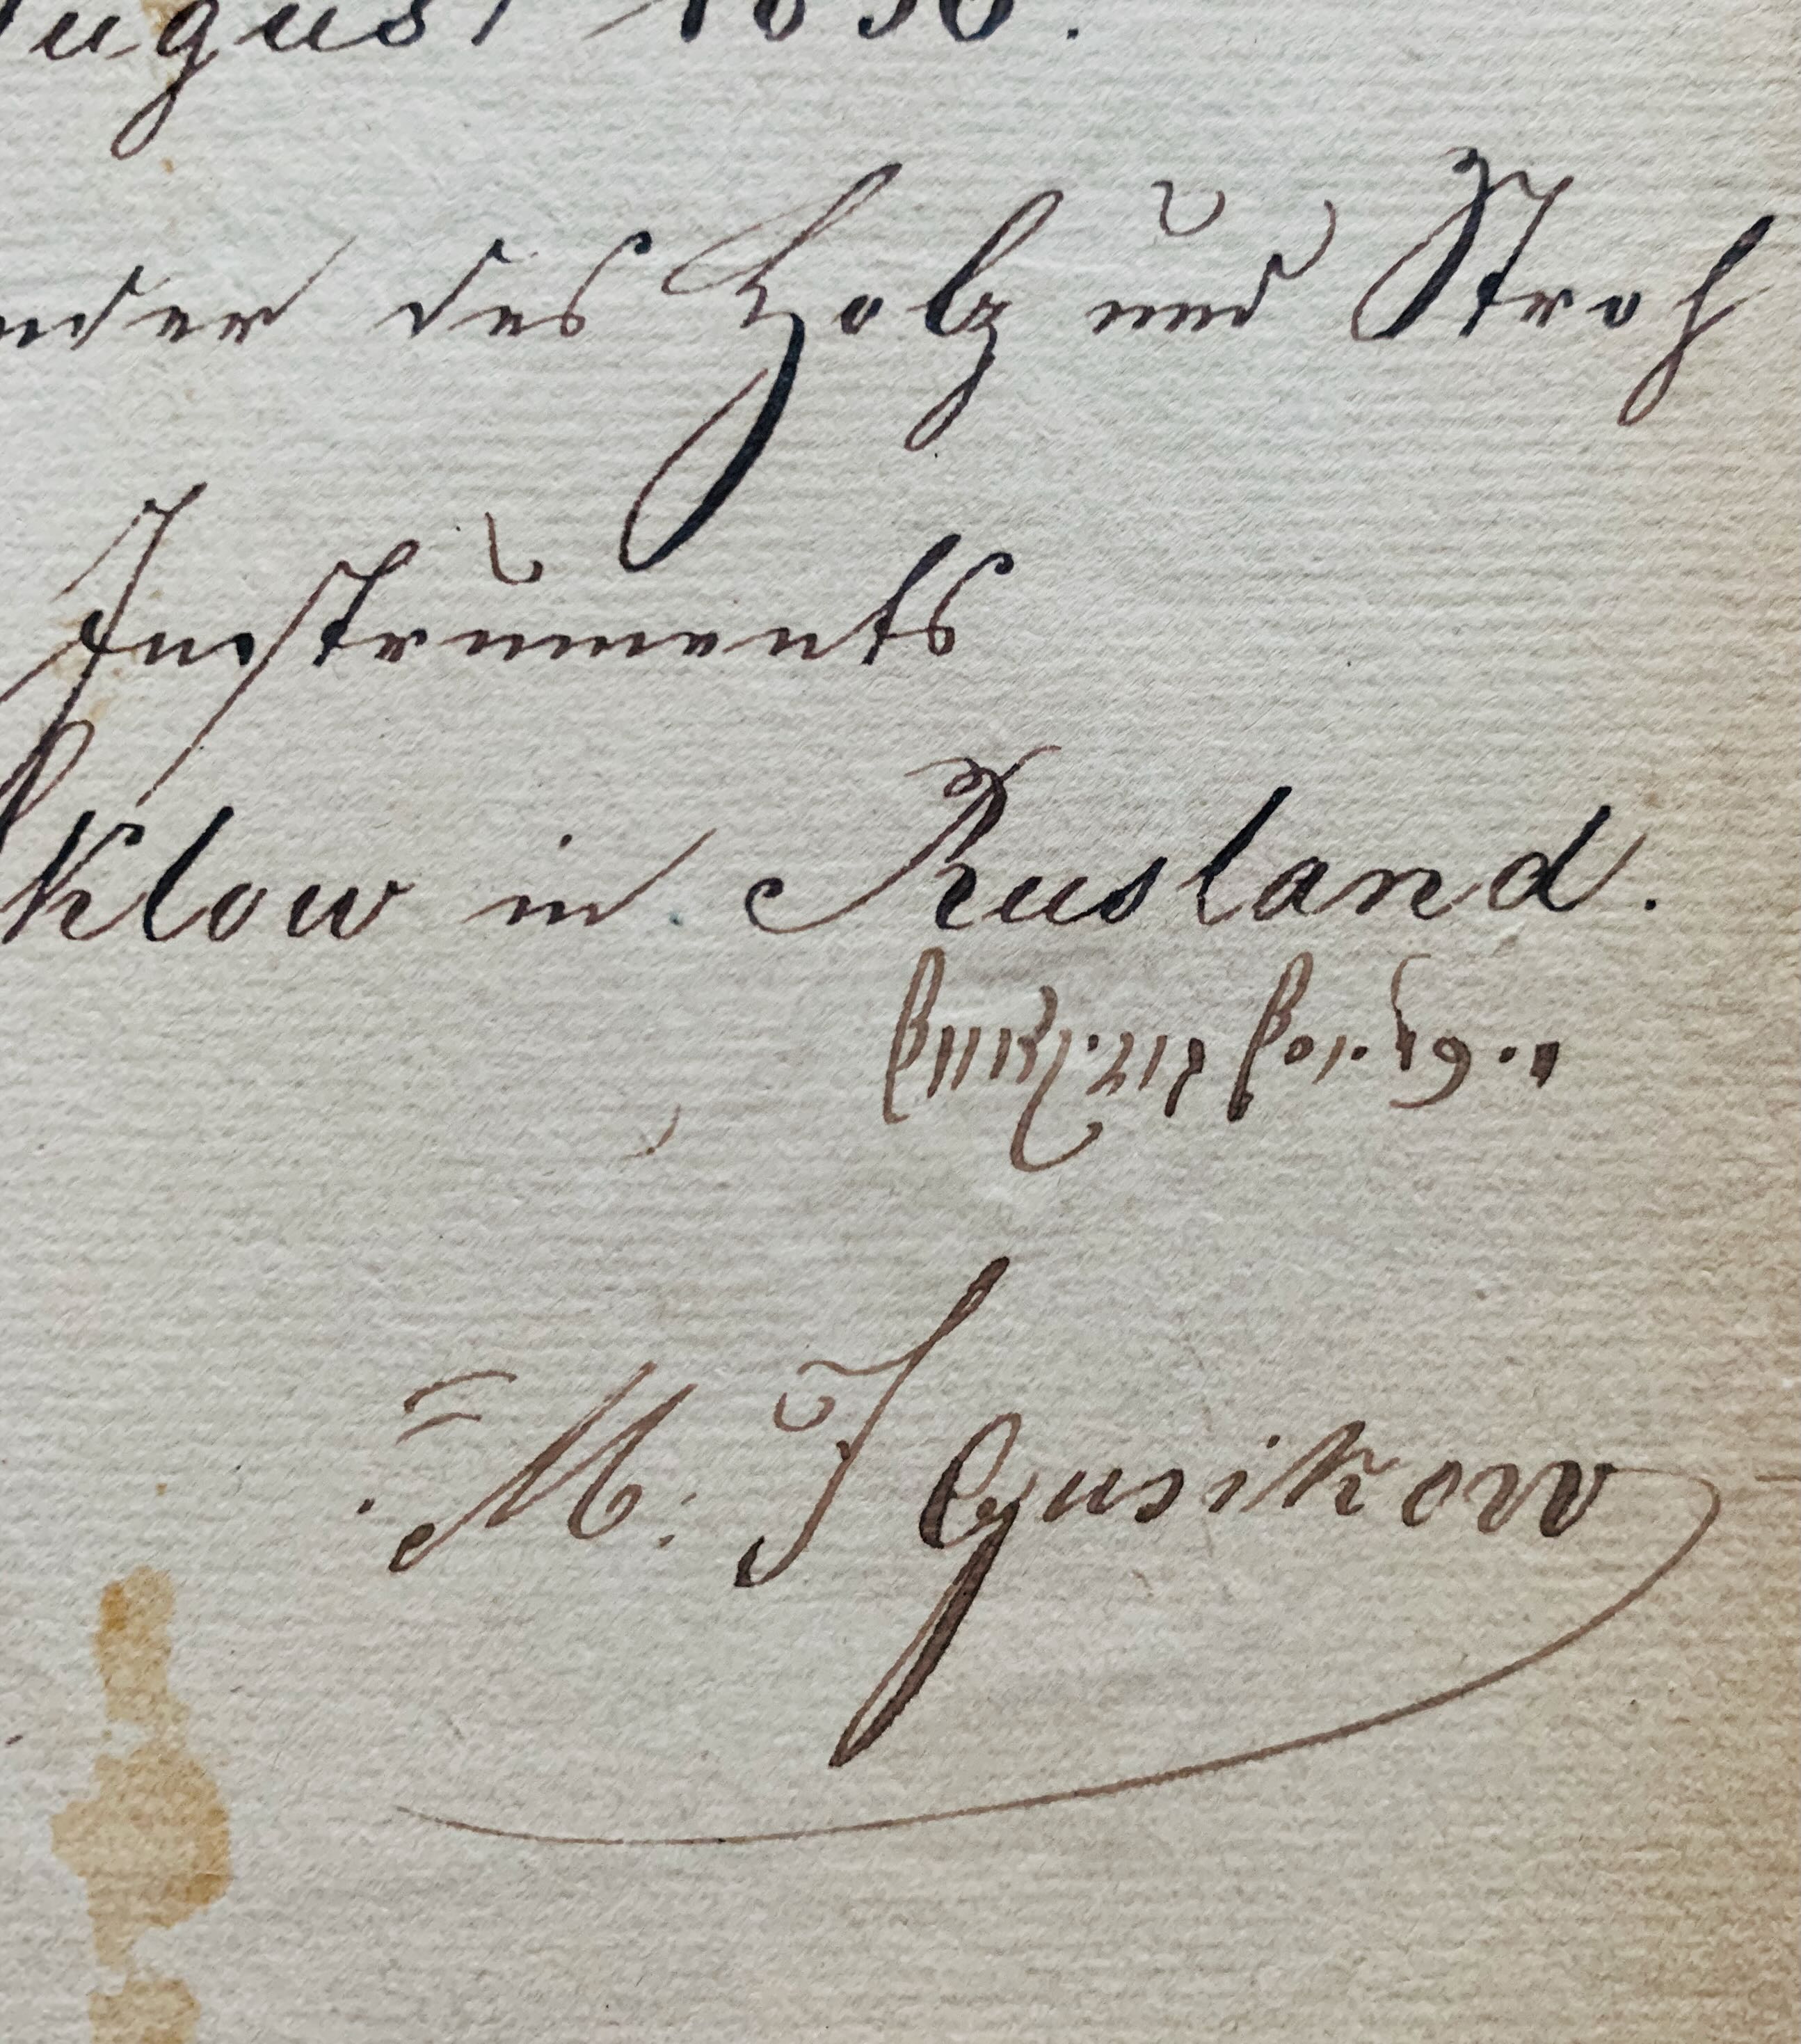 ugust 1836.
nder des Holz und Stroh
Instruments
klow in Rusland.
M: J Gusikow